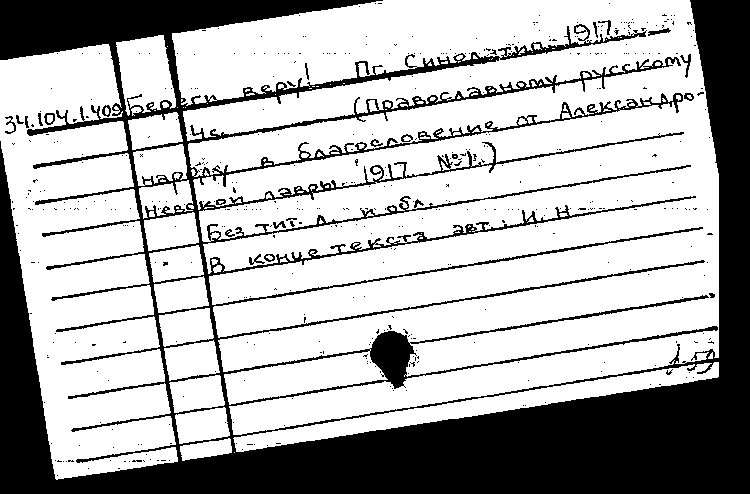 34.104.1.409 Береги веру! Пг, Синод.тип. 1917.
4с. (Православному русскому
народу в благословение от Александро-
Невской лавры. 1917 №1.)
Без тит. л. и обл.
В конце текста авт.: И. Н